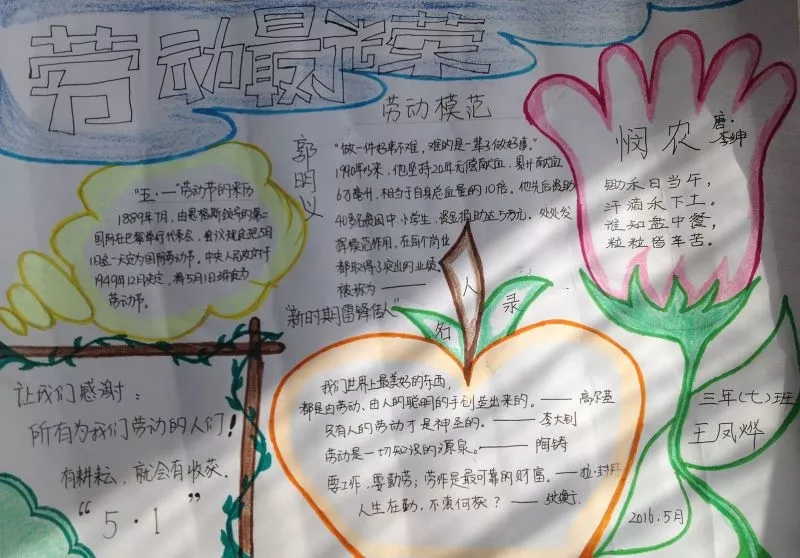 劳动最光荣
劳动模范
郭明义
"做一件好事不难，难的是一辈子做好事。"
1990年以来，他坚持20年无偿献血，累计献血
6万毫升，相当于自身总血量的10倍。他先后资助
40多名贫困中小学生，资金捐助达5万元。处处发
挥模范作用，在每个岗位
都取得了突出的业绩。
被称为——
"新时期雷锋传人"
"五·一"劳动节的来历
1889年7月，由恩格斯领导的第二
国际在巴黎举行代表会，会议规定把5月
1日这一天定为国际劳动节。中央人民政府于
1949年12月决定，将5月1日确定为
劳动节。
悯农
唐·李绅
锄禾日当午，
汗滴禾下土。
谁知盘中餐，
粒粒皆辛苦。
名人录
我们世界上最美好的东西，
都是由劳动、由人的聪明的手创造出来的。——高尔基
只有人的劳动才是神圣的。——李大钊
劳动是一切知识的源泉。——陶铸
要工作，要勤劳；劳作是最可靠的财富。——拉·封丹
人生在勤，不索何获？——张衡
让我们感谢：
所有为我们劳动的人们！
有耕耘，就会有收获．
"5·1"
三年(七)班
王凤烨
2016.5月